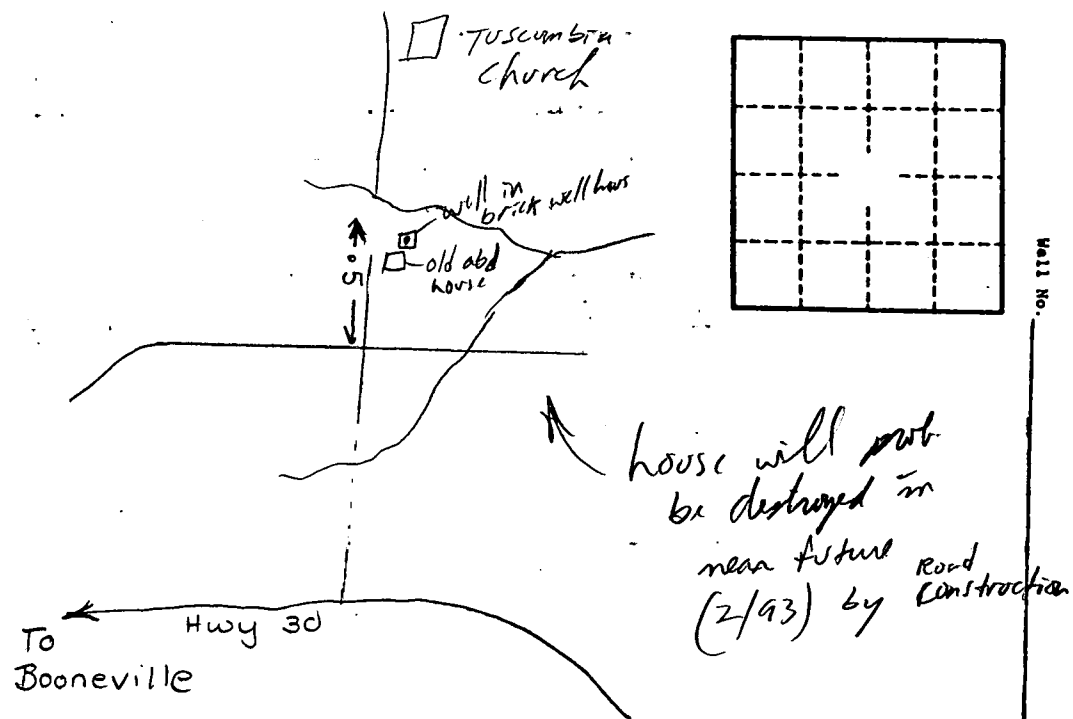 Tuscumbia
Church
well in
brick well hous
old abd
house
.5
Well No.
house will prob.
be destroyed in
near future
(2/93) by Road
Construction
Hwy 30
To
Booneville